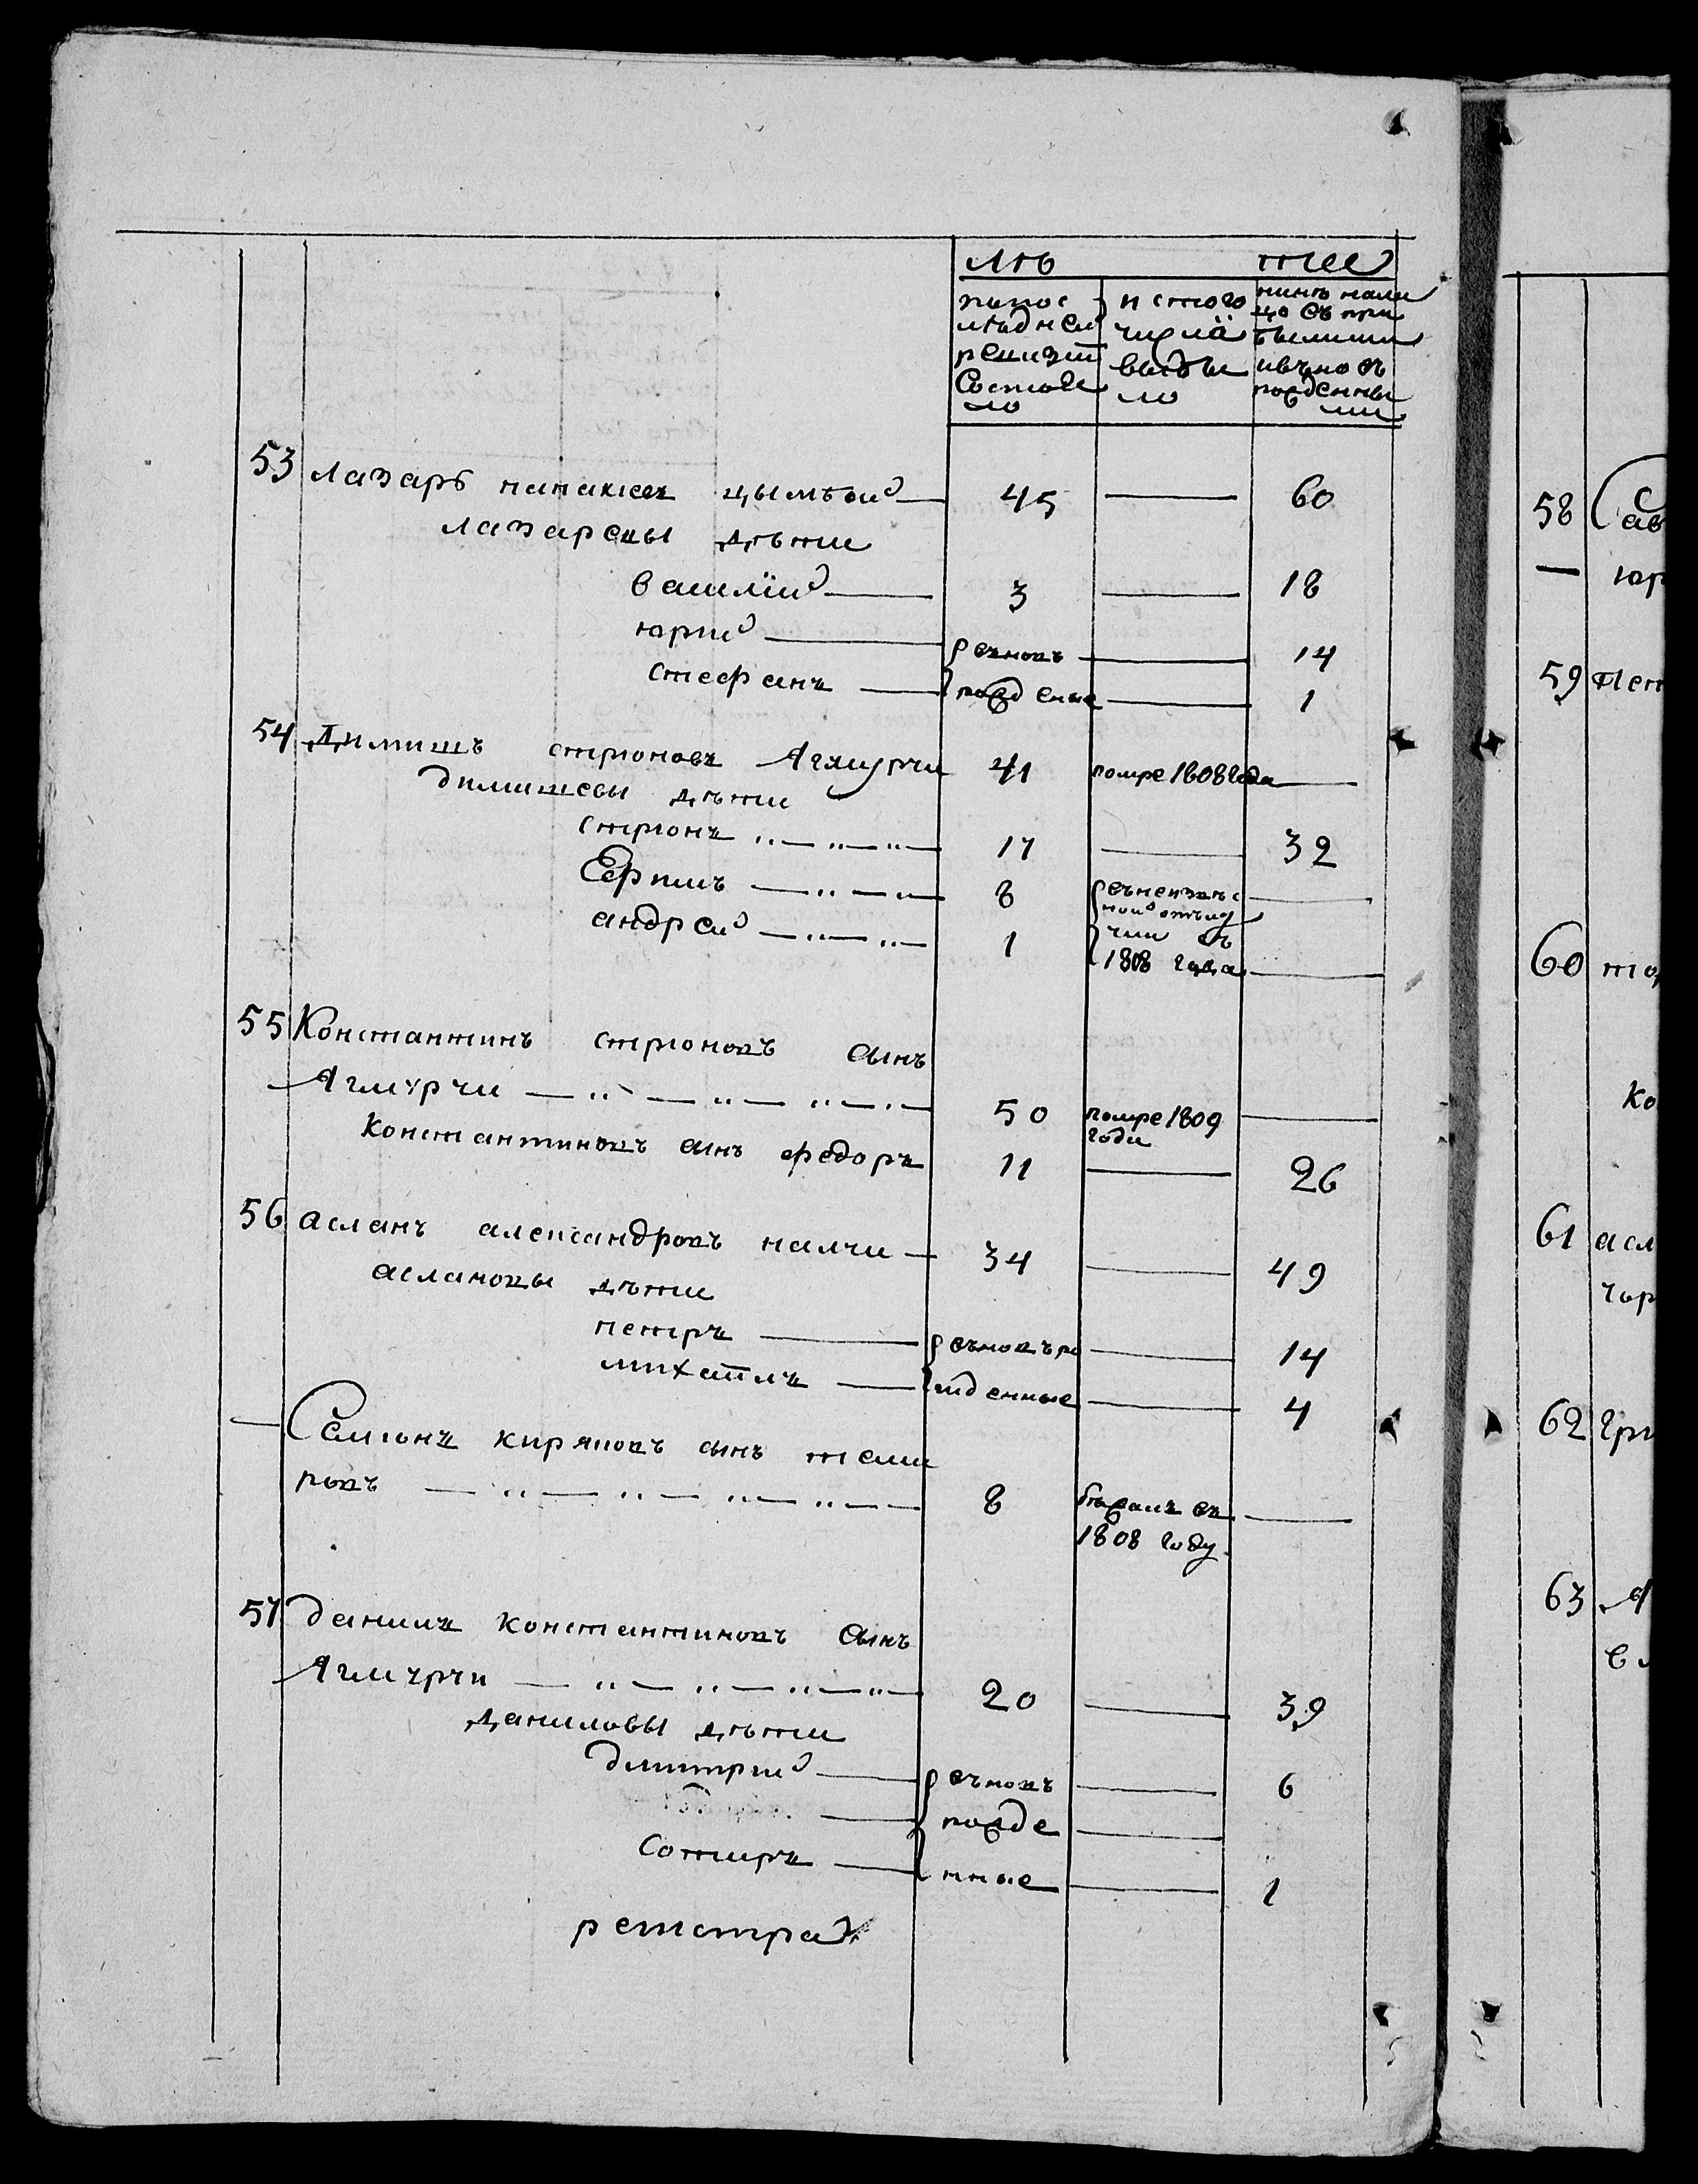 лѣ тее
попос
лѣдней
ревизіи
Состоя
ло
и стого
числа
выбы
ло
нинѣ нали
цо съ при
былими
ивъновъ
рожденны
ми
53 лазарь панаис цымбои 45 60
лазаревы дѣти
василій 3 18
юрий вновъ 14
стефанъ рожденые 1
54 Димишъ стрионовъ Агмурчи 41 помре 1808 года
димишевы дѣти
стрионъ 17 32
Ефримъ 8
андрей 1 1808 года
55 Константинъ стрионовъ сынъ
Агмурчи 50 помре 1809
года
константиновъ сынъ федоръ 11 26
56 асланъ александровъ налчи 34 49
аслановы дѣти
петръ въновъ ро 14
михаилъ жденные 4
Семионъ киряковъ сынъ теми
ровъ 8 бѣжалъ въ
1808 году
57 данилъ константиновъ сынъ
Агмурчи 20 39
даниловы дѣти
дмитрий въновъ 6
рожде
Сотиръ нные 1
58 Сав
юр
59 Пет
60 то
ко
61 асл
чор
62 гри
63 А